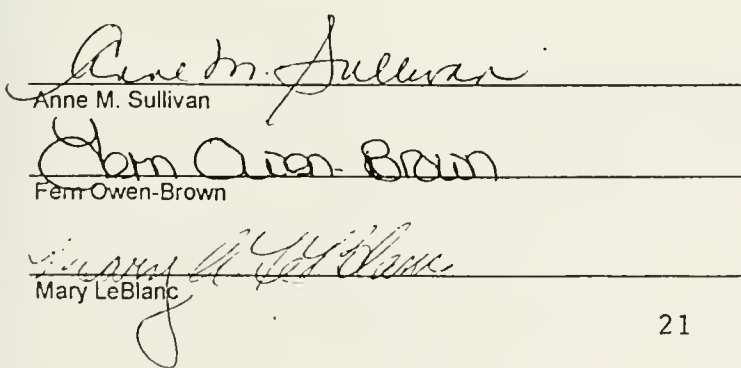 Anne M. Sullivan
Anne M. Sullivan
Fern Owen-Brown
Fern Owen-Brown
Mary A LeBlanc
Mary LeBlanc
21